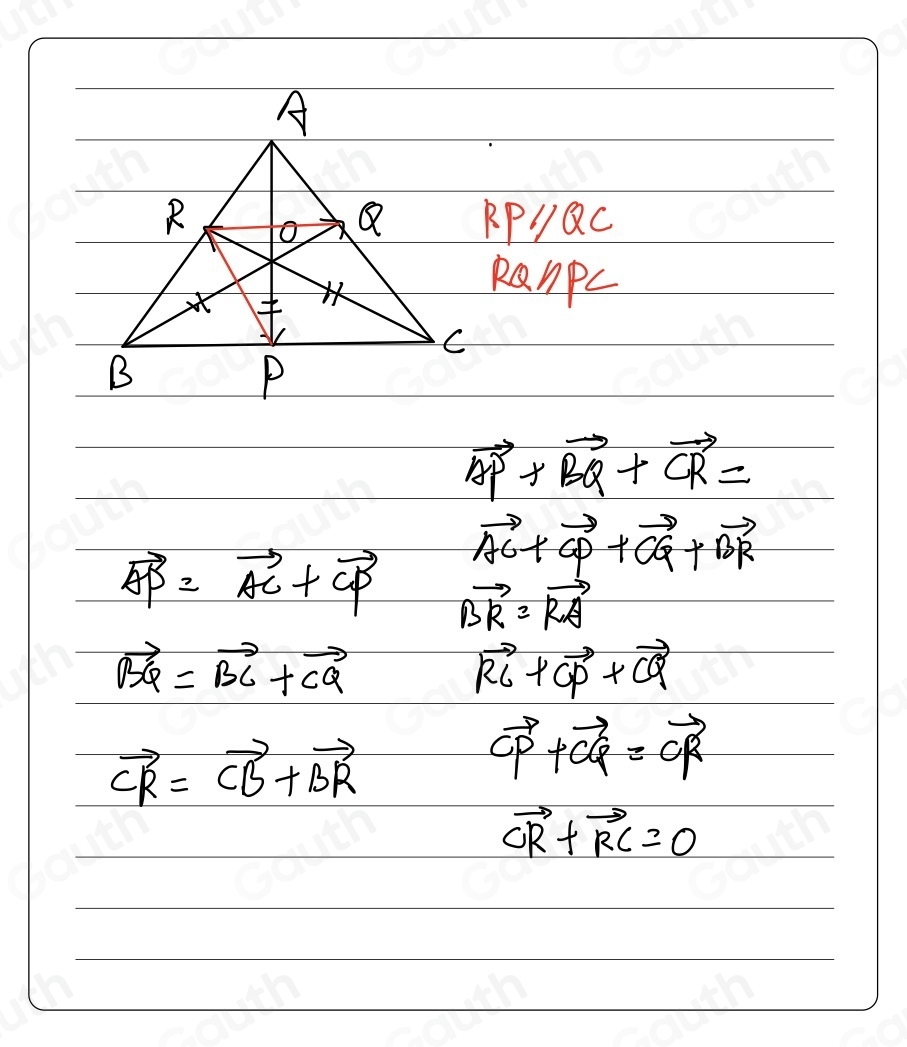 A
R
O
Q
B
P
C
RP//QC
RQ//PC
AP→ + BQ→ + CR→ =
AC→ + CP→ + CQ→ + BR→
AP→ = AC→ + CP→
BR→ = RA→
BQ→ = BC→ + CQ→
RC→ + CP→ + CQ→
CP→ + CQ→ = CR→
CR→ = CB→ + BR→
CR→ + RC→ = 0
Gauth